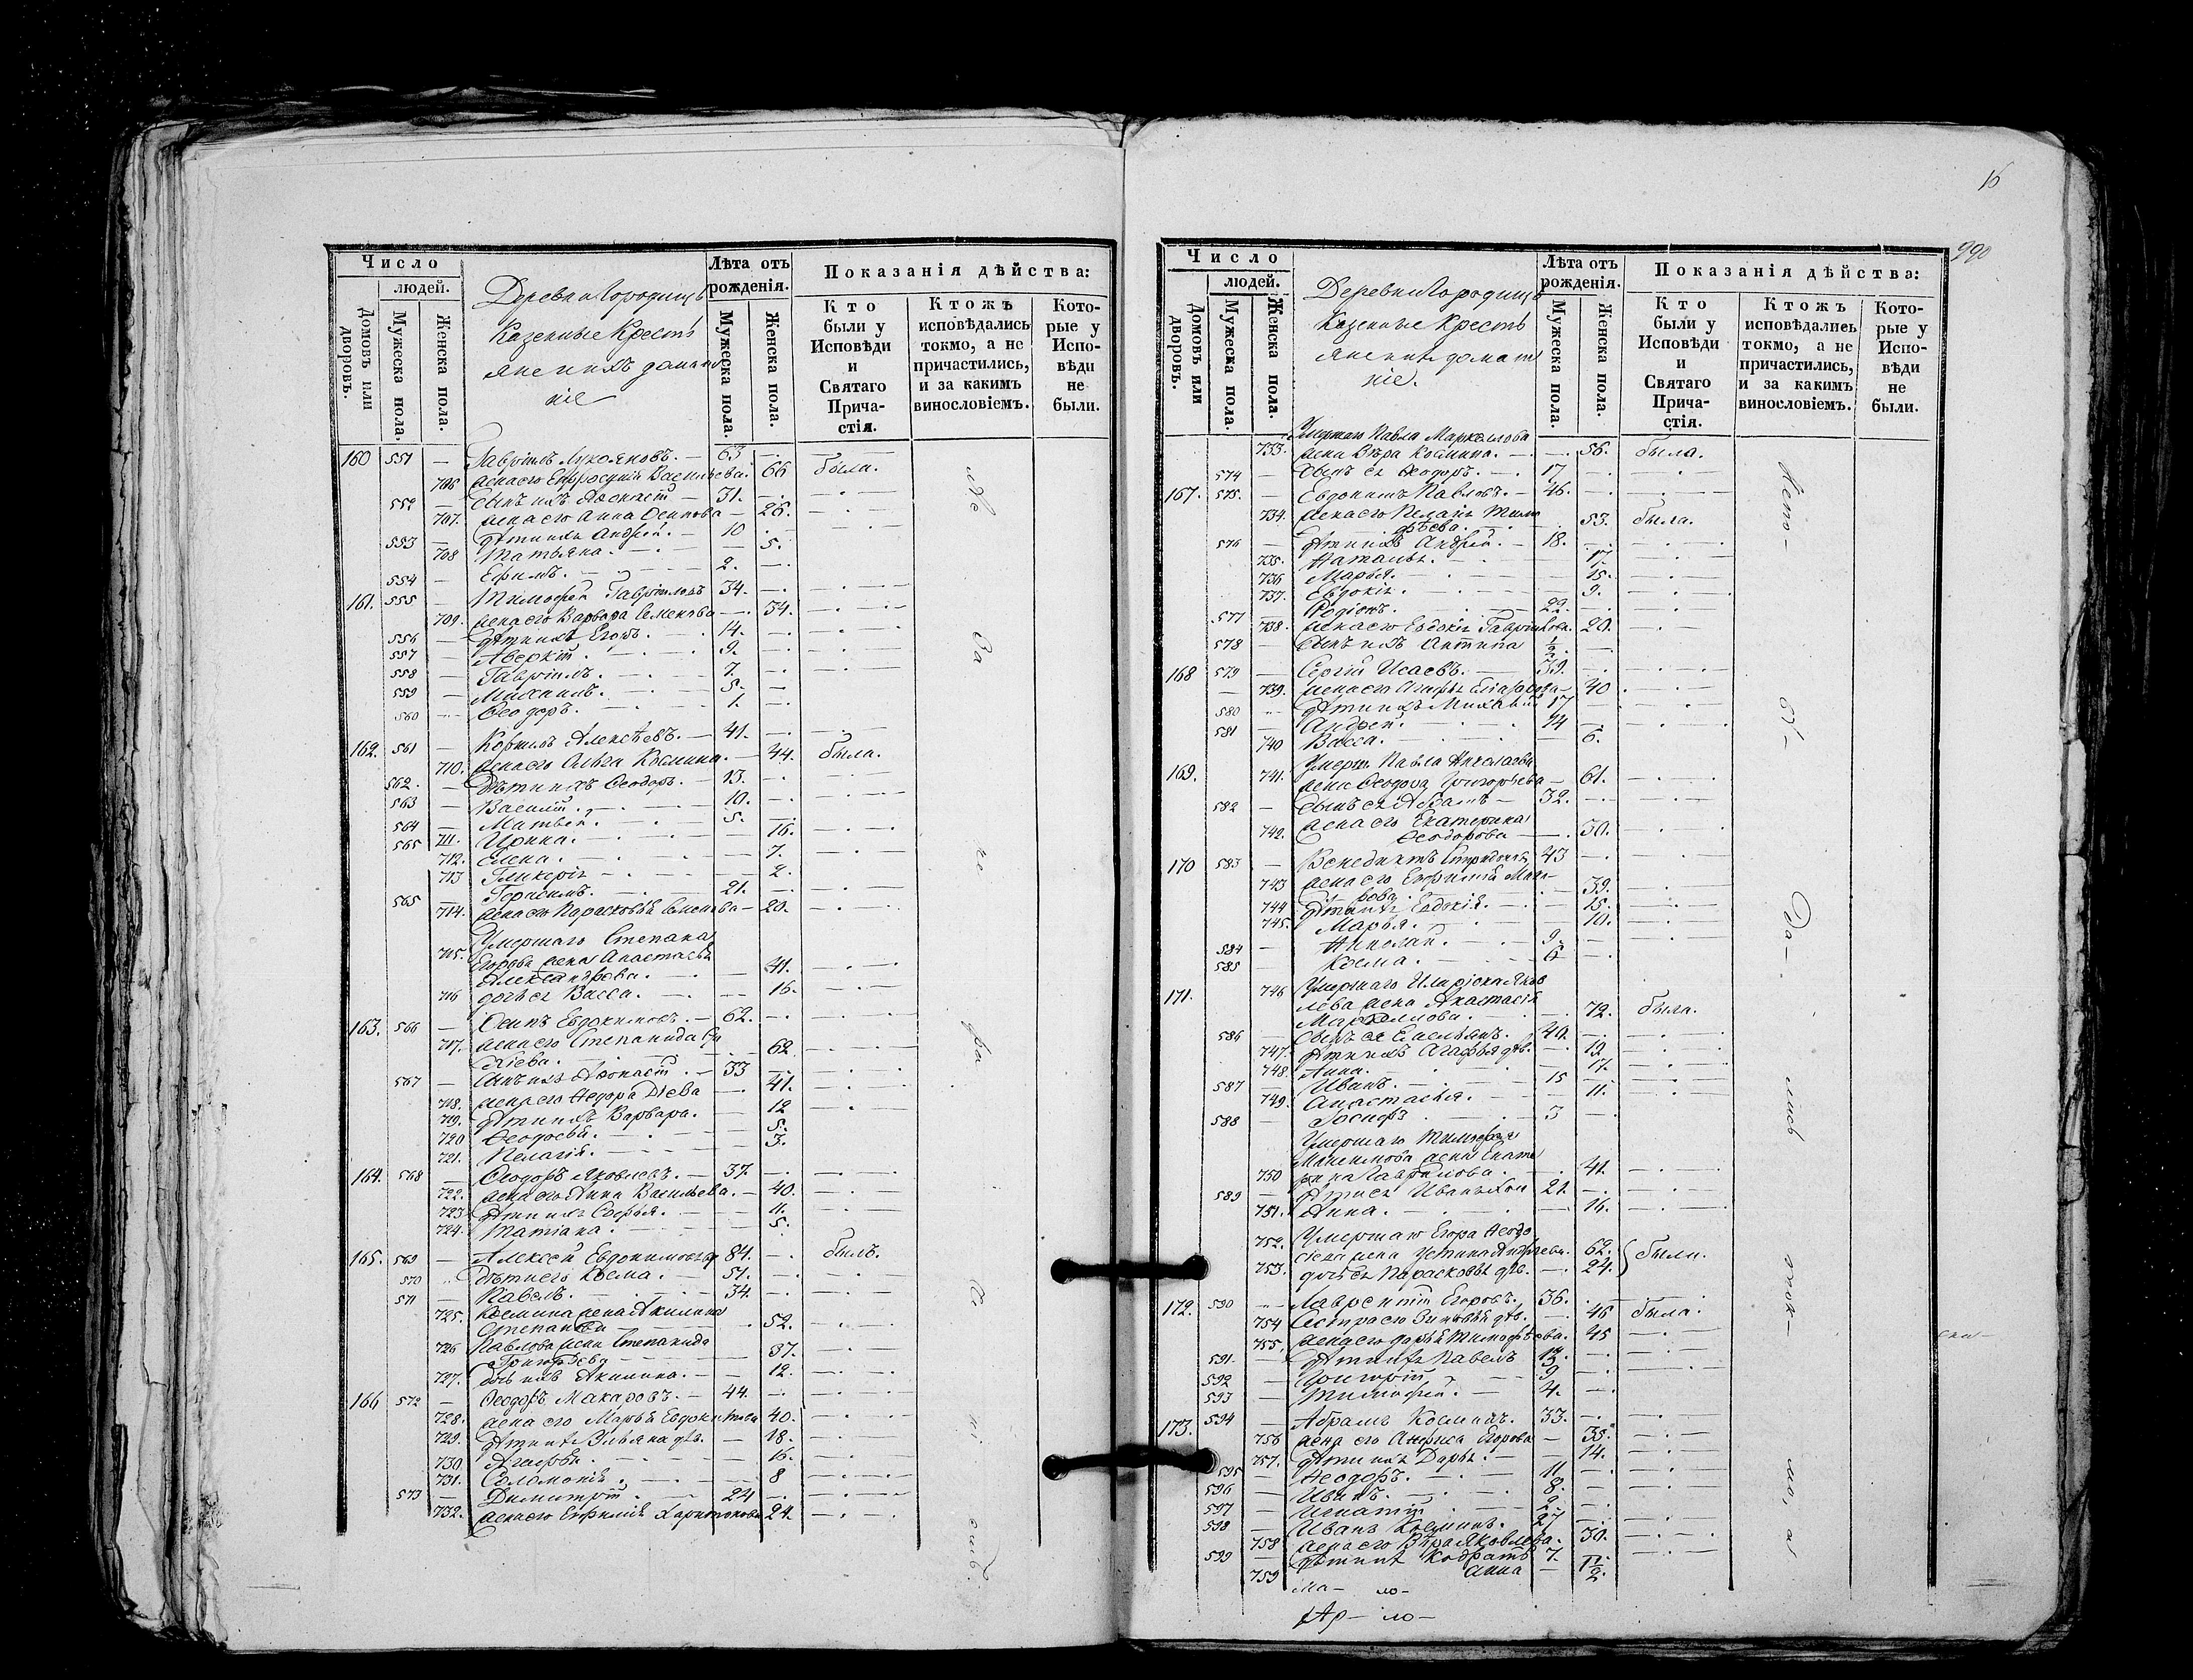 Число
людей.
Домовъ или дворовъ.
Мужеска пола.
Женска пола.
Деревни Городищъ
Казенные Кресть
яне и ихъ домаш
ніе
Лѣта отъ рожденія.
Мужеска пола.
Женска пола.
Показанія дѣйства:
Кто были у Исповѣди и Святаго Причастія.
Ктожъ исповѣдались токмо, а не причастились, и за какимъ винословіемъ.
Которые у Исповѣди не были.
160 551 — Гавріилъ Лукояновъ. — 63 —
706 жена его Евфросинія Васильева. 66 была.
552 — сынъ ихъ Аѳонасій — 31. —
707. жена его Анна Осипова — 26.
553 — дѣти ихъ Андрей. — 10
708 Татьяна. — 5.
554 — Ефимъ. — 2. —
161. 555 — Тимофей Гавріиловъ 34. —
709. жена его Варвара Семенова — 34.
556 — дѣти ихъ Егоръ. — 14. —
557 — Аверкій. — 9. —
558 — Гавріилъ. — 7. —
559 — Михаилъ. — 5. —
560 — Ѳеодоръ. — 1. —
162. 561 — Корнилъ Алексѣевъ. — 41. —
710. жена его Ольга Космина. — 44. была.
562. — Дѣти ихъ Ѳеодоръ. — 13. —
563 — Василій. — 10. —
564 — Матвѣй. — 5. —
565 711. Ирина. — 16.
712. Елена. — 7.
713 Гликерія — 2.
565 — Герасимъ. — 21. —
714. жена его Парасковья Семенова — 20.
715. Умершаго Степана
Егорова жена Анастасья
Александрова. — 41.
716 дочь ея Васса. — 16.
163. 566 — Осипъ Евдокимовъ. — 62. —
717. жена его Степанида
62
567 — сынъ ихъ Аѳонасій. — 33 —
718. жена его Ѳедора — 41.
719. Дѣти ихъ Варвара. — 12
720 Ѳеодосья. — 5.
721. Пелагія. — 3.
164. 568 — Ѳеодоръ Яковлевъ. — 37. —
722. жена его Анна Васильева. — 40.
723 Дѣти ихъ Софья. — 11.
724. Татіана. — 5.
165. 569 — Алексей Евдокимовъ 84. — былъ.
570 дѣти его Косма. — 51. —
571 — Павелъ. — 34. —
725. Космина жена Акилина
Степанова — 52.
726 Павлова жена Степанида
Григорьева — 37.
727. дочь ихъ Акилина. — 12.
166 572 — Ѳеодоръ Макаровъ. — 44. —
728. жена его Марья Евдокимова 40.
729. Дѣти ихъ Ульяна дѣв. — 18.
730 Агафья. — 16.
731. Соломонія. — 8
573 — Димитрій. — 24 —
732. жена его Евфимія Харитонова 24.
16
990
Число
людей.
Домовъ или дворовъ.
Мужеска пола.
Женска пола.
Деревни Городищъ
Казенные Кресть
яне и ихъ домаш
ніе.
Лѣта отъ рожденія.
Мужеска пола.
Женска пола.
Показанія дѣйства:
Кто были у Исповѣди и Святаго Причастія.
Ктожъ исповѣдались токмо, а не причастились, и за какимъ винословіемъ.
Которые у Исповѣди не были.
Умершаго Павла Маркеллова
733. жена Вѣра Космина. — 56. была.
574 — сынъ ея Ѳеодоръ. — 17 —
167. 575. — Евдокимъ Павловъ. — 46. —
734. жена его Пелагія Тимо
ѳѣева. — 53. была.
576 — Дѣти ихъ Андрей. — 18. —
735. Наталья. — 17.
736 Марья. — 15.
737. Евдокія. — 9.
577 Родіонъ. — 22. —
738. жена его Евдокія Гаврилова. 20.
578 — сынъ ихъ Антипа 1/2. —
168 579 — Сергій Исаевъ. — 39. —
739. жена его Агафья 40
580 Дѣти ихъ 17
581 — Андрей. — 14 —
740 Васса. — 6.
169. 741. Умерш. Павла Николаева
жена Ѳеодора Григорьева — 61.
582 — сынъ ея Абрамъ — 32. —
742. жена его Екатерина
Ѳеодорова — 30.
170 583 — Венедиктъ 43 —
743 жена его Евфимія Мака
рова. — 39.
744 Дѣти ихъ Евдокія. — 15.
745. Марья. — 10.
584 — Николай. — 9. —
585 Косма. — 6 —
171. 746 Умершаго Иларіона Яков
лева жена Анастасія
Маркеллова. — 72. была.
586 — сынъ ея Емельянъ. 40 —
747. Дѣти ихъ Агафья дѣв. — 19
748. Анна. — 17.
587 — Иванъ. — 15 —
749. Анастасья. — 11.
588 — Іосифъ — 3 —
Умершаго Тимофея
Максимова жена Екате
750 рина Гаврилова. — 41.
589 — Дѣти ея Иванъ 21. —
751. Анна. — 16.
752. Умершаго Егора Ѳеодо
сѣева жена Устинья Андреева. 62. были.
753. дочь ея Парасковья дѣв. — 24.
172. 590 Лаврентій Егоровъ. 36.
754 Сестра его Зиновья дѣв. — 46 была.
755. жена его Дарья Тимофѣева. 45
591. — Дѣти ихъ Павелъ 13. —
592 — Григорій — 9 —
593 — Тимофей. — 4. —
173. 594 — Абрамъ Косминъ. 33. —
756 жена его Анфиса Егорова — 35.
757. Дѣти ихъ Дарья. — 14.
595 — Ѳеодоръ. — 11 —
596 — Иванъ. — 8. —
597 — Игнатій — 2. —
598 — Иванъ Косминъ. — 27 —
758 жена его Вѣра Яковлева. 30.
599 — Дѣти ихъ Кодратъ 7. —
759 Анна — 1 1/2.